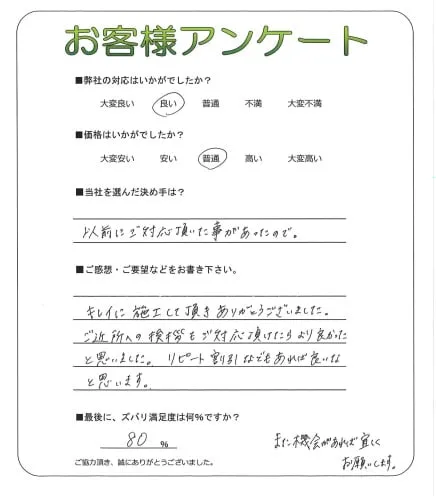 お客様アンケート
■弊社の対応はいかがでしたか？
大変良い 良い 普通 不満 大変不満
■価格はいかがでしたか？
大変安い 安い 普通 高い 大変高い
■当社を選んだ決め手は？
以前にご対応頂いた事があったので。
■ご感想・ご要望などをお書き下さい。
キレイに施工して頂きありがとうございました。
ご近所への挨拶もご対応頂けたらより良かった
と思いました。リピート割引などもあれば良いな
と思います。
■最後に、ズバリ満足度は何%ですか？
80 %
また機会があれば宜しく
お願いします。
ご協力頂き、誠にありがとうございました。